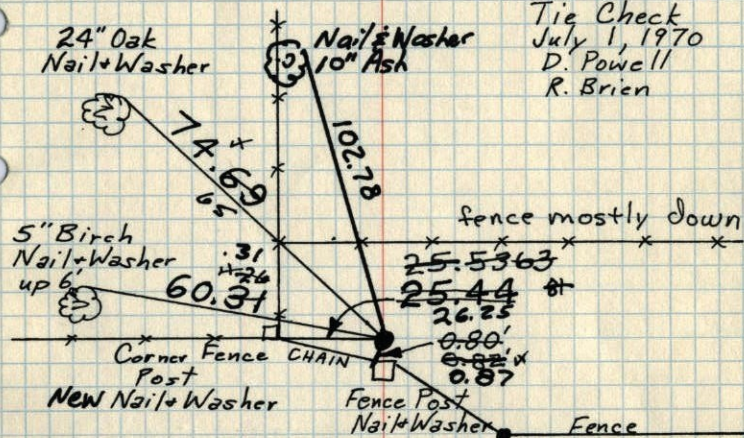 Tie Check
July 1, 1970
D. Powell
R. Brien
24" Oak
Nail & Washer
Nail & Washer
10" Ash
74.69
65
102.78
fence mostly down
5" Birch
Nail & Washer
up 6'
.31
60.31
25.5363
25.44
26.25
0.80'
0.82'x
0.87
Corner Fence
Post
New Nail & Washer
CHAIN
Fence Post
Nail & Washer
Fence